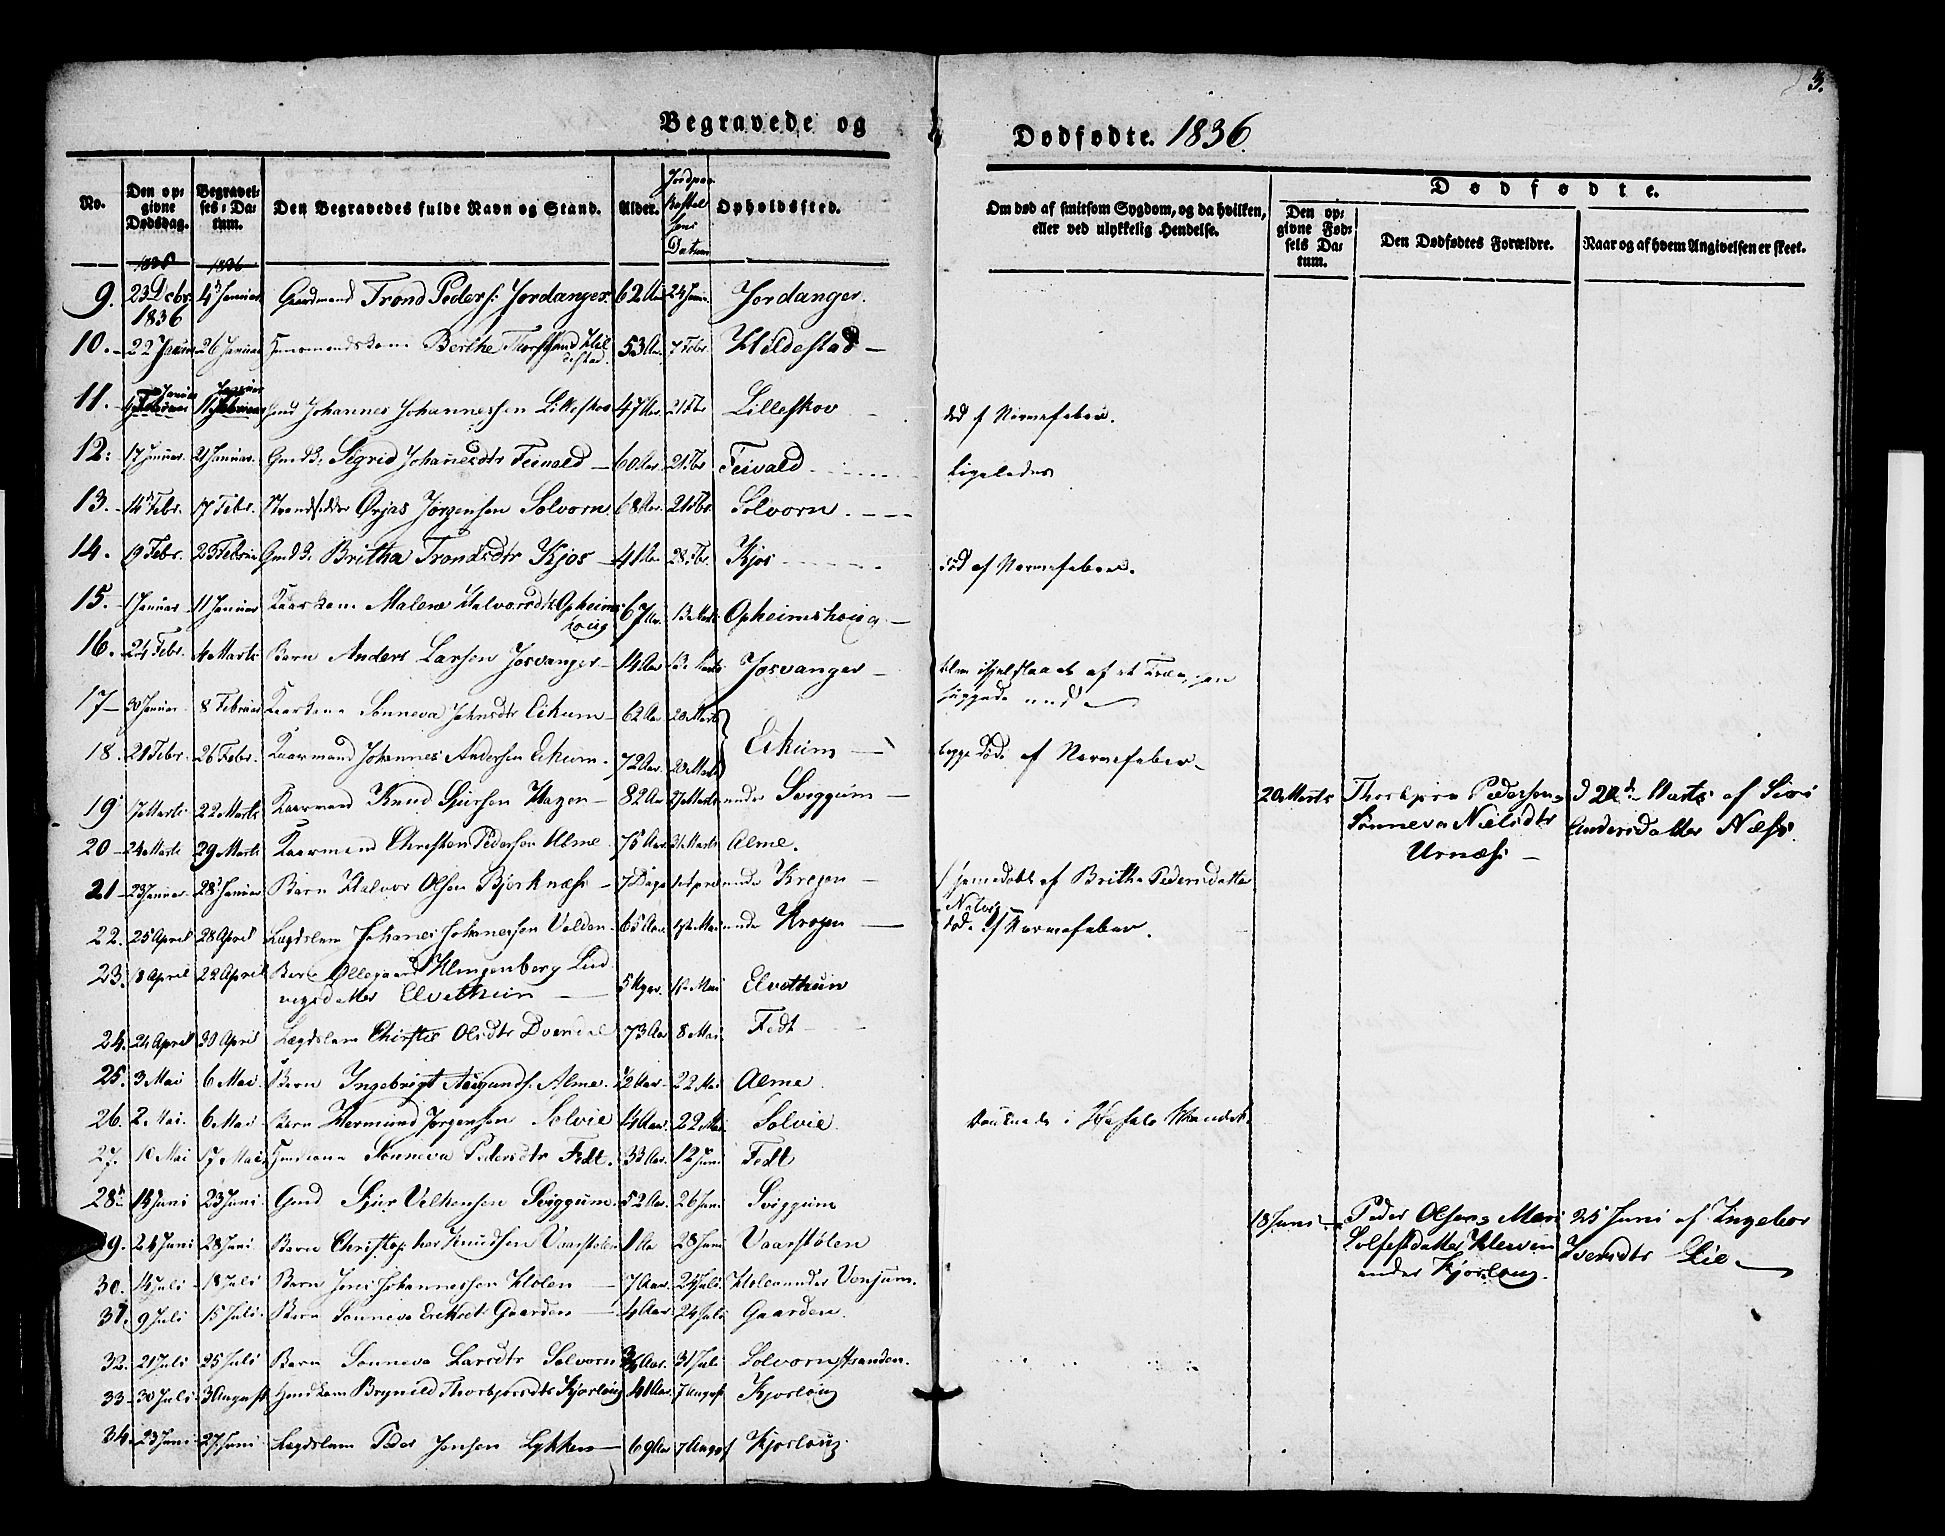 3.
Begravede og Dødfødte. 1836
No. Den opgivne Dødsdag. Begravelses-Datum. Den Begravedes fulde Navn og Stand. Alder. Jordpaakastelsens Datum Opholdssted. Om død af smitsom Sygdom, og da hvilken, eller ved ulykkelig Hendelse. Dødfødte.
Den opgivne Fødsels Datum. Den Dødfødtes Forældre. Naar og af hvem Angivelsen er skeet.
1835 1836
9. 23 Dcbr. 4 Januar Gaardmand Trond Peders: Jordanger 62 Aar 24 Janu. Jordanger.
1836
10. 22 Januar 26 Januar Huusmandskone Berthe Hildestad. 53 Aar 7 Febr Hildestad
11. Januar 11 Januar Gmd Johannes Johannessen Lilleskov 47 Aar 21 Fbr Lilleskov død af Nervefeber.
12. 17 Januar. 21 Januar. Sigrid Johannesdtr Feivald 60 Aar. 21 Fbr Feivald ligeledes
13. 14 Febr. 17 Febr. Strandsidder Ørjas Jørgensen Solvorn 68 Aar. 21 Fbr Solvorn.
14. 19 Febr. 23 Februar Britha Trondsdtr Kjos 41 Aar 28 Fbr. Kjos død af Nervefeber.
15. 1 Januar 11 Januar Kaarkone Malene Halvorsdtr Opheimshoug 67 Ar. 13 Marts Opheimshoug
16. 24 Febr. 4 Marts Barn Anders Larsen Josvanger 14 Aar 13 Marts Josvanger blev ihjelslaaet af et Træe, han huggede ned
17 30 Januar. 8 Februar Kaarkone Sønneva Johnsdtr Eikum 62 Aar 20 Marts
18. 21 Febr. 26 Febr. Kaarmand Johannes Andersen Eikum. 72 Aar. 20 Marts Eikum begge døde af Nervefeber
19 17 Marts 22 Marts Kaarmand Knud Sjursen Hagen 82 Aar 27 Marts under Sviggum 20 Marts Thorbjørn Pedersen, Sønneva Nielsdtr Urnæss d 20 Marts af Siri Andersdatter Næss.
20 24 Marts 29 Marts Kaarmand Christen Pedersen Alme 75 Aar 31 Marts Alme.
21 23 Januar. 28 Januar Barn Halvor Olsen Bjørknæss 7 Dage April under Krogen hjemedøbt af Britha Pedersdatter
22. 25 April 28 April Lægdslem Johannes Johannessen Volden 65 Aar. 1 Mai under Kroge død af Nervefeber.
23. 8 April 22 April Barn Ollegaard Klingenberg Ludvigsdatter Elvethun 5 Uger. 12 Mai Elvethun
24. 24 April 30 April Lægdslem Christie Olsdtr 73 Aar 8 Mai. Fedt
25. 3 Mai 6 Mai Barn Ingebrigt Aamunds. Alme. 1/2 Aar. 22 Mai Alme
26. 2 Mai. 6 Mai Barn Hermund Jørgensen Solvie 4 Aar. 22 Mai Solvie druknede i Hafslo Vandet.
27. 10 Mai 17 Mai Sønneva Pedersdtr Fedt. 33 Aar. 12 Juni Fedt
28. 14 Juni 23 Juni Gmd Sjur Sviggum 52 Aar 26 Juni Sviggum 18 Juni Peder Olsen, Mari under Kjørloug. 25 Juni af Ingebor Iversdtr Lie
29. 24 Juni 28 Juni Barn Christopher Knudsen Vaarstølen 1 Aar 28 Juni Vaarstølen
30. 14 Juli 18 Juli Barn Jens Johannessen Holen 7 Aar 24 Juli Holen under Vonjum.
31. 9 Juli 15 Juli Barn Sønneva Gaarden 4 Aar 24 Juli Gaarden.
32. 21 Juli 25 Juli Barn Sønneva Larsdtr Solvorn 3/4 Aar. 31 Juli Solvornstranden.
33. 30 Juli 3 August Brynild Thorbjørsdtr Kjørloug 41 Aar. 7 August Kjørloug
34. 23 Juni 27 Juni Lægdslem Peder Jensen Lykken 69 Aar 7 August Kjørloug